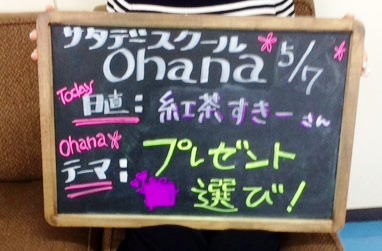 サタデースクール
Ohana 5/7
Today
日直：紅茶すきーさん
Ohana
テーマ：プレゼント
選び！